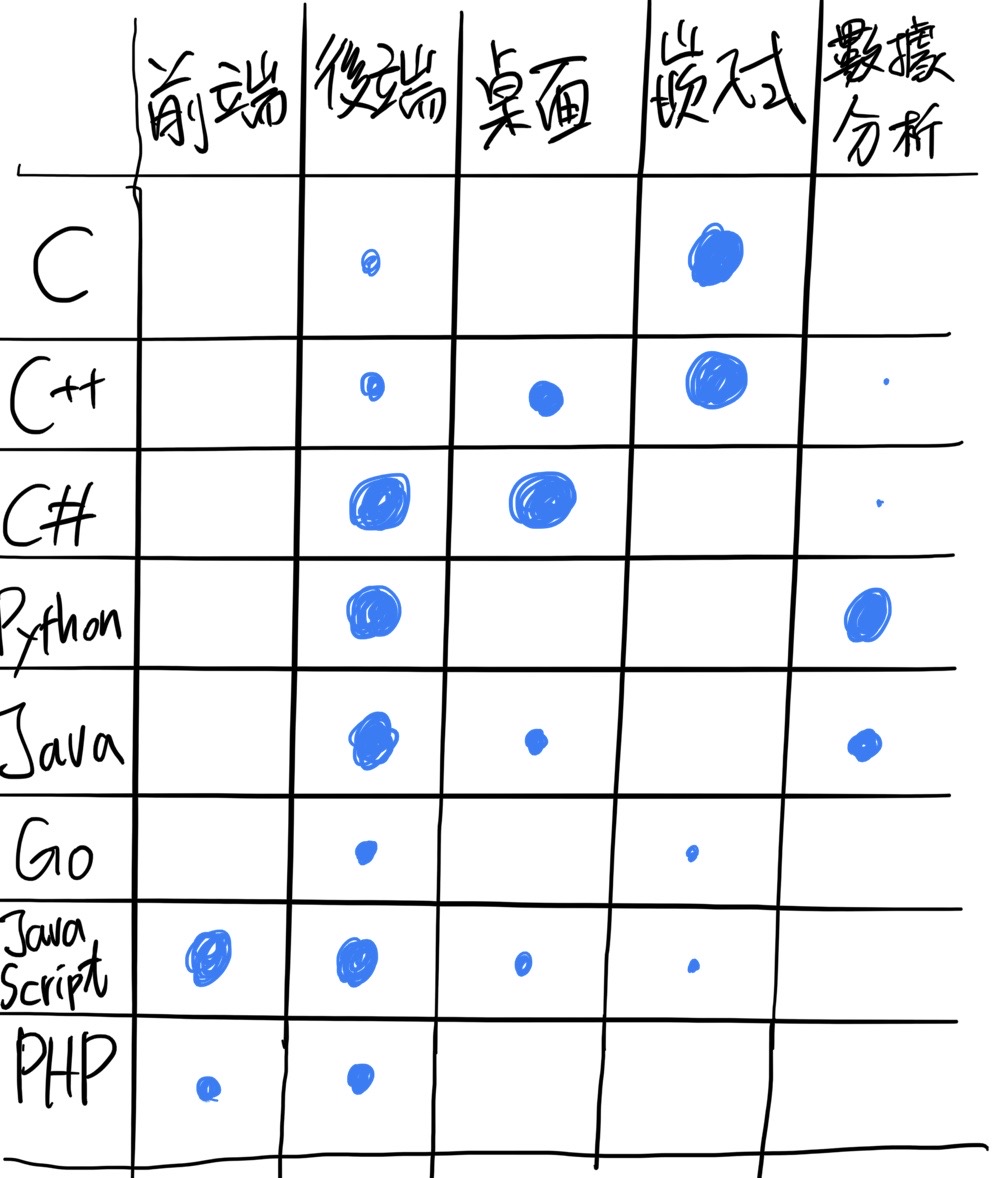 前端 後端 桌面 嵌入式 數據
分析
C
C++
C#
Python
Java
Go
Java
Script
PHP